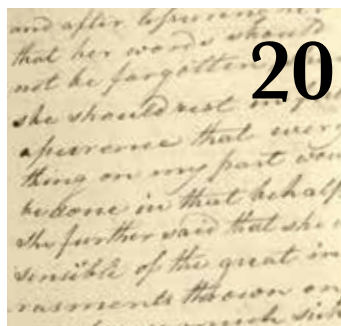 and after
that her words should
20
not be forgotten
she should rest in
apurence that every
thing on my part
be done in that behalf
she further said that she
sensible of the great in
rasments thrown on
much